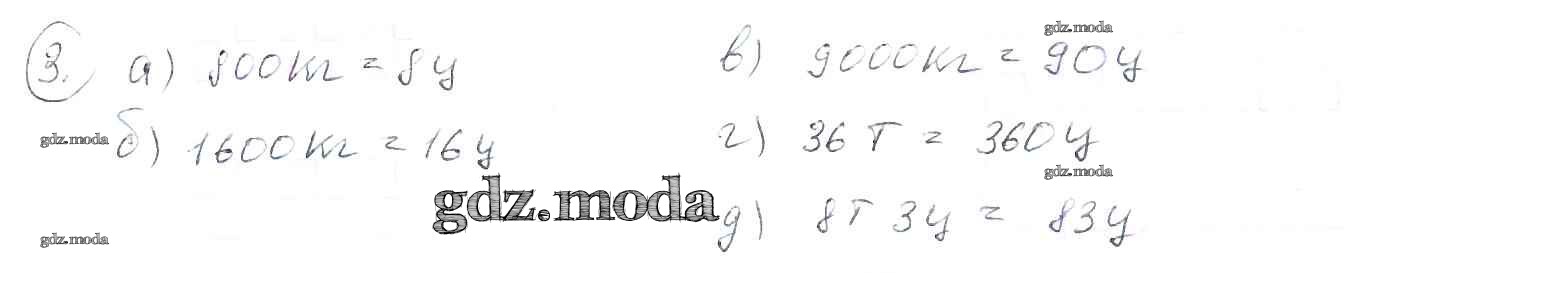 gdz.moda
3. а) 800кг = 8ц в) 9000кг = 90ц
gdz.moda б) 1600кг = 16ц г) 36 т = 360ц
gdz.moda
gdz.moda д) 8т 3ц = 83ц
gdz.moda